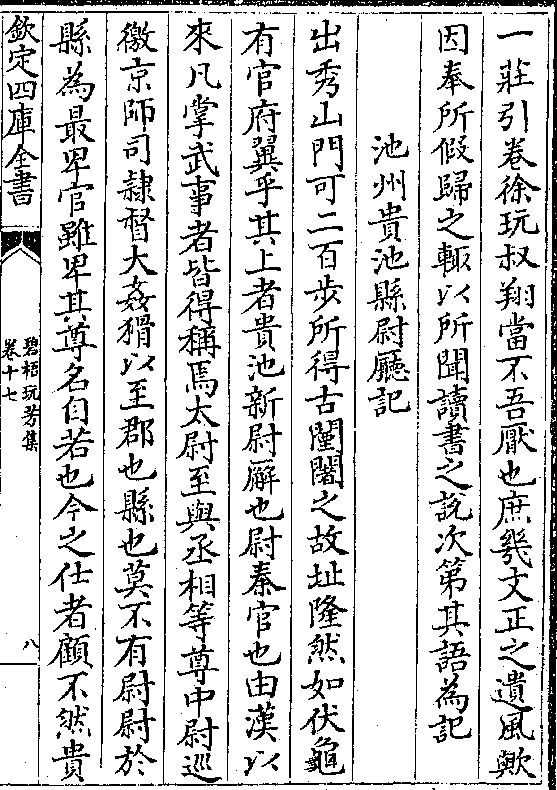 一莊引卷徐玩叔翔當不吾厭也庶幾文正之遺風歟
因奉所假歸之輙以所聞讀書之說次第其語為記
池州貴池縣尉廳記
出秀山門可二百步所得古闉闍之故址隆然如伏龜
有官府翼乎其上者貴池新尉廨也尉秦官也由漢以
來凡掌武事者皆得稱焉太尉至與丞相等尊中尉巡
徼京師司隷督大姦猾以至郡也縣也莫不有尉尉於
縣為最卑官雖卑其尊名自若也今之仕者顧不然貴
欽定四庫全書
碧梧玩芳集
卷十七
八